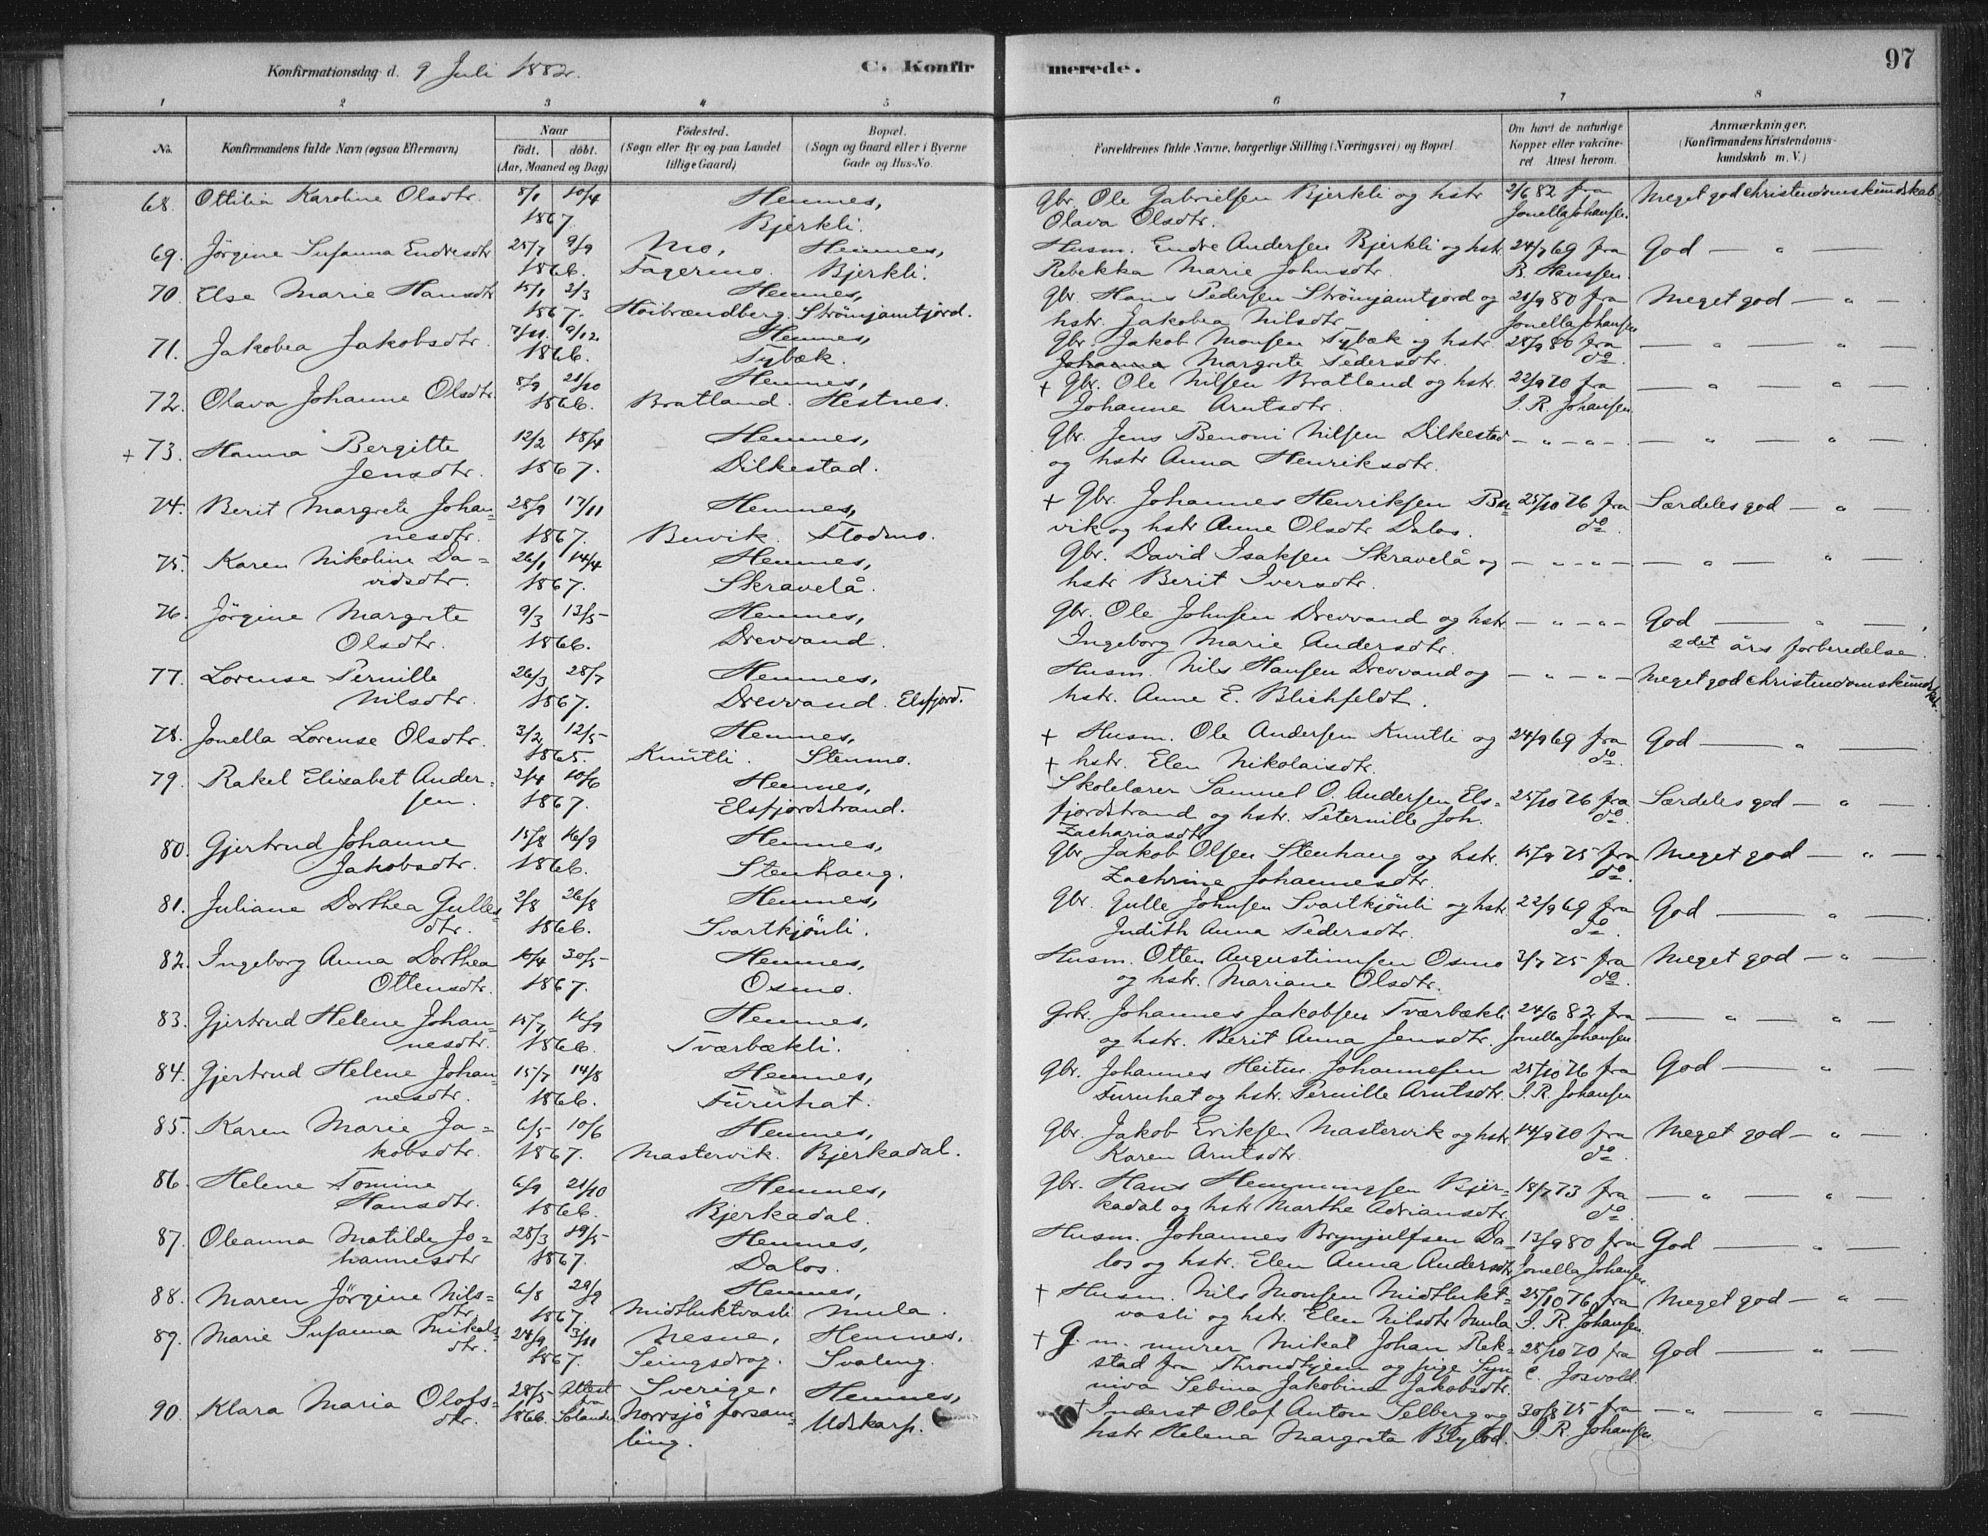 Konfirmationsdag d. 9 Juli 1882. C. Konfir merede. 97
1 2 3 4 5 6 7 8
No. Konfirmandens fulde Navn (ogsaa Efternavn) Naar født. døbt. (Aar, Maaned og Dag) Fødested. (Sogn eller By og paa Landet tillige Gaard) Bopæl. (Sogn og Gaard eller i Byerne Gade og Hus-No. Forældrenes fulde Navne, borgerlige Stilling (Næringsvei) og Bopæl Om havt de naturlige Kopper eller vakcineret Attest herom. Anmærkninger. (Konfirmandens Kristendomskundskab m. V.)
68. Ottilia Karoline Olsdtr. 8/1 10/4 Hemnes, Gbr. Ole Gabrielsen Bjerkli og hstr 2/6 82 fra Meget god christendomskundskab
1867. Bjerkli. Olava Olsdtr. Jonella Johansen
69. Jörgine Susanna Endresdtr 25/7 9/9 Mo, Hemnes, Husm. Endre Andersen Bjerkli og hstr. 24/9 69 fra God — " —
1866. Fagermo. Bjerkli. Rebekka Marie Johnsdtr. B. Hanssen.
70. Else Marie Hansdtr 15/1 2/3 Hemnes, Gbr. Hans Pedersen Strömjamtjord og 21/9 80 fra Meget god — " —
1867. Höibrændberg. Strömjamtjord. hstr. Jakobea Nilsdtr. Jonella Johansen
71. Jakobea Jakobsdtr. 7/11. 9/12. Hemnes, Gbr. Jakob Monsen Tybæk og hstr. 28/9 80 fra — " — " —
1866. Tybæk. Johanna Margrete Pedersdtr. do.
72. Olava Johanne Olsdtr. 8/9 21/10 Hemnes, + Gbr. Ole Nilsen Bratland og hstr. 22/9 70 fra — " — " —
1866. Bratland. Hestnes. Johanne Arntsdtr. I. R. Johansen
+ 73. Hanna Bergitte 12/2 18/4 Hemnes, Gbr. Jens Benoni Nilsen Dilkestad — " — " — — " — " —
Jensdtr. 1867. Dilkestad. og hstr Anna Henriksdtr.
74. Berit Margrete Johan= 28/9 17/11 Hemnes, + Gbr. Johannes Henriksen Bu= 25/10 76 fra Særdeles god — " —
nesdtr. 1867. Buvik. Flodmo. vik og hstr Anne Olsdtr Dalos. do.
75. Karen Nikoline Da= 26/1 14/4 Hemnes, Gbr. David Isaksen Skravelå og — " — " — — " — " —
vidsdtr. 1867. Skravelå. hstr Berit Iversdtr.
76. Jörgine Margrete 9/3 13/5 Hemnes, Gbr. Ole Johnsen Drevvand og hstr. — " — " — God — " —,
Olsdtr. 1866. Drevvand Ingeborg Marie Andersdtr. 2det års forberedelse.
77. Lorense Pernille 26/3 28/7 Hemnes, Husm. Nils Hansen Drevvand og — " — " — Meget god christendomskundskab.
Nilsdtr. 1867. Drevvand. Elsfjord. hstr. Anne E. Blichfeldt.
78. Jonella Lorense Olsdtr. 3/2 12/5 Hemnes, + Husm. Ole Andersen Knutli og 24/9 69 fra God — " —
1865. Knutli. Stenmo. + hstr. Elen Nikolaisdtr. do.
79. Rakel Elisabet Ander= 2/4 10/6 Hemnes, Skolelærer Samuel O. Andersen Els= 25/10 76 fra Særdeles god — " —
sen. 1867. Elsfjordstrand. fjordstrand og hstr. Peternille Joh. do.
Zachariasdtr.
80. Gjertrud Johanne 15/8 16/9 Hemnes, Gbr Jakob Olsen Stenhaug og hstr. 15/9 75 fra Meget god — " —
Jakobsdtr. 1866. Stenhaug. Zachrine Johannesdtr. do.
81. Juliane Dorthea Gulles= 2/8 26/8 Hemnes, Gbr. Gulle Johnsen Svartkjönli og hstr 22/9 69 fra God — " —
dtr. 1866. Svartkjönli. Judith Anna Pedersdtr. do.
82. Ingeborg Anna Dorthea 16/4 30/5 Hemnes, Husm. Otten Augustinusen Osmo 3/7 75 fra Meget god — " —
Ottensdtr. 1867. Osmo. og hstr. Mariane Olsdtr. do.
83. Gjertrud Helene Johan= 15/7 16/9 Hemnes, Gbr. Johannes Jakobsen Tværbækli 24/6 82 fra — " — " —
nesdtr. 1866. Tværbækli. og hstr. Berit Anna Jensdtr. Jonella Johansen
84. Gjertrud Helene Johan= 15/7 14/8 Hemnes, Gbr. Johannes Heitm. Johannesen 25/10 76 fra God — " —
nesdtr. 1866. Furuhat. Furuhat og hstr. Pernille Arntsdtr. I. R. Johansen
85. Karen Marie Ja= 6/5 10/6 Hemnes, Gbr. Jakob Eriksen Mastervik og hstr. 14/9 70 fra Meget god — " —
kobsdtr. 1867. Mastervik. Bjerkadal. Karen Arntsdtr. do.
86. Helene Tomine 6/9 21/10 Hemnes, Gbr. Hans Hemmingsen Bjer= 18/7 73 fra — " — " —
Hansdtr. 1866. Bjerkadal. kadal og hstr Marthe Adriansdtr. do.
87. Oleanna Matilde Jo= 28/3 19/5 Hemnes, Husm. Johannes Brynjulfsen Da= 13/9 80 fra God — " —
hannesdtr 1867. Dalos. los og hstr. Elen Anna Andersdtr Jonella Johansen.
88. Maren Jörgine Nils= 6/8 29/9 Hemnes, + Husm. Nils Monsen Midtlukt= 25/10 76 fra Meget god — " —
dtr. 1867. Midtluktvasli Mula. vasli og hstr. Elen Nilsdtr Mula I. R. Johansen.
89. Marie Susanna Mikals= 24/9 3/11 Nesne, Hemnes. + G. m. murer Mikal Johan Rek= 28/10 70 fra God — " —
dtr. 1867. Seingsdrag. Svaleng. stad fra Throndhjem og pige Syn= C. Josvold.
niva Sebina Jakobina Jakobsdtr.
90. Klara Maria Olofs= 28/5 Attest Sverige, Hemnes, + Inderst Olaf Anton Selberg og 30/8 75 fra — " — " —
dtr. 1866. fra Solander Norrsjö forsam= Udskarp. hstr Helena Margreta Blylod. I. R. Johansen
ling.